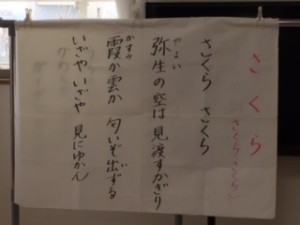 さくら
(さくらさくら)
さくら さくら
やよい
弥生の空は 見渡すかぎり
かすみ
霞か雲か 匂いぞ出ずる
いざやいざや 見にゆかん